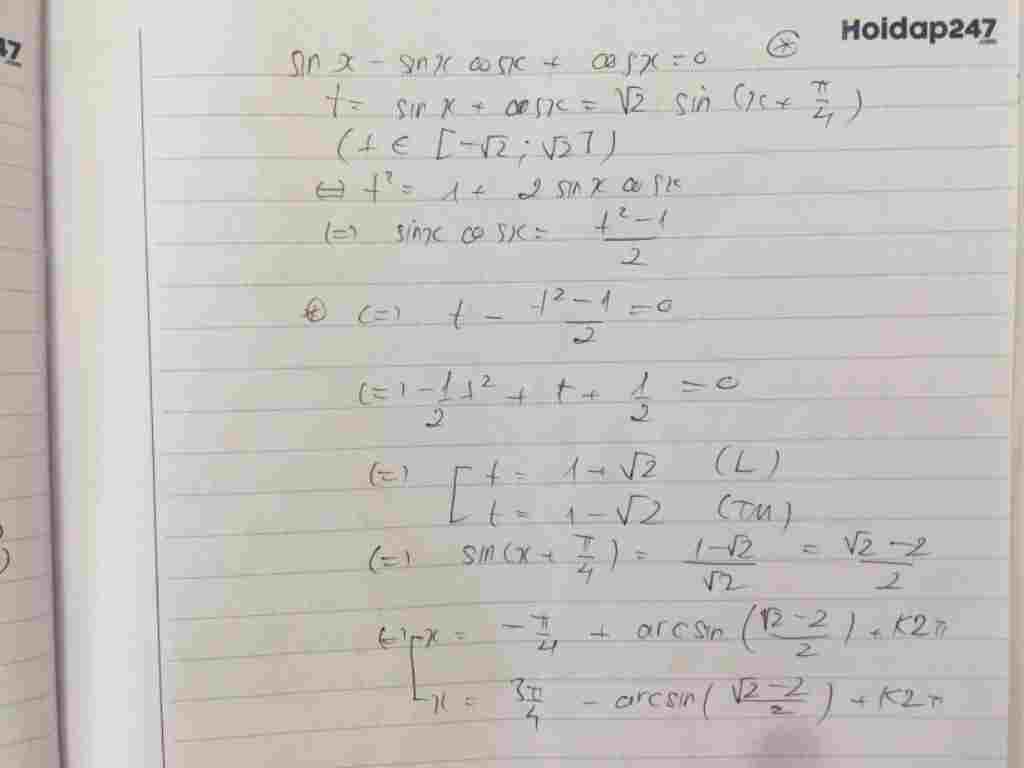 Hoidap247
.com
47
sin x - sinx cosx + cosx = 0 (*)
t = sin x + cosx = √2 sin (x + π/4)
(t ∈ [-√2 ; √2])
⇔ t² = 1 + 2 sinx cosx
(=) sinx cosx = (t² - 1)/2
(*) (=) t - (t² - 1)/2 = 0
(=) -1/2 t² + t + 1/2 = 0
(=) [ t = 1 + √2 (L)
t = 1 - √2 (TM)
(=) sin(x + π/4) = (1-√2)/√2 = (√2 - 2)/2
(=) [ x = -π/4 + arcsin ((√2 - 2)/2) + K2π
x = 3π/4 - arcsin ((√2 - 2)/2) + K2π